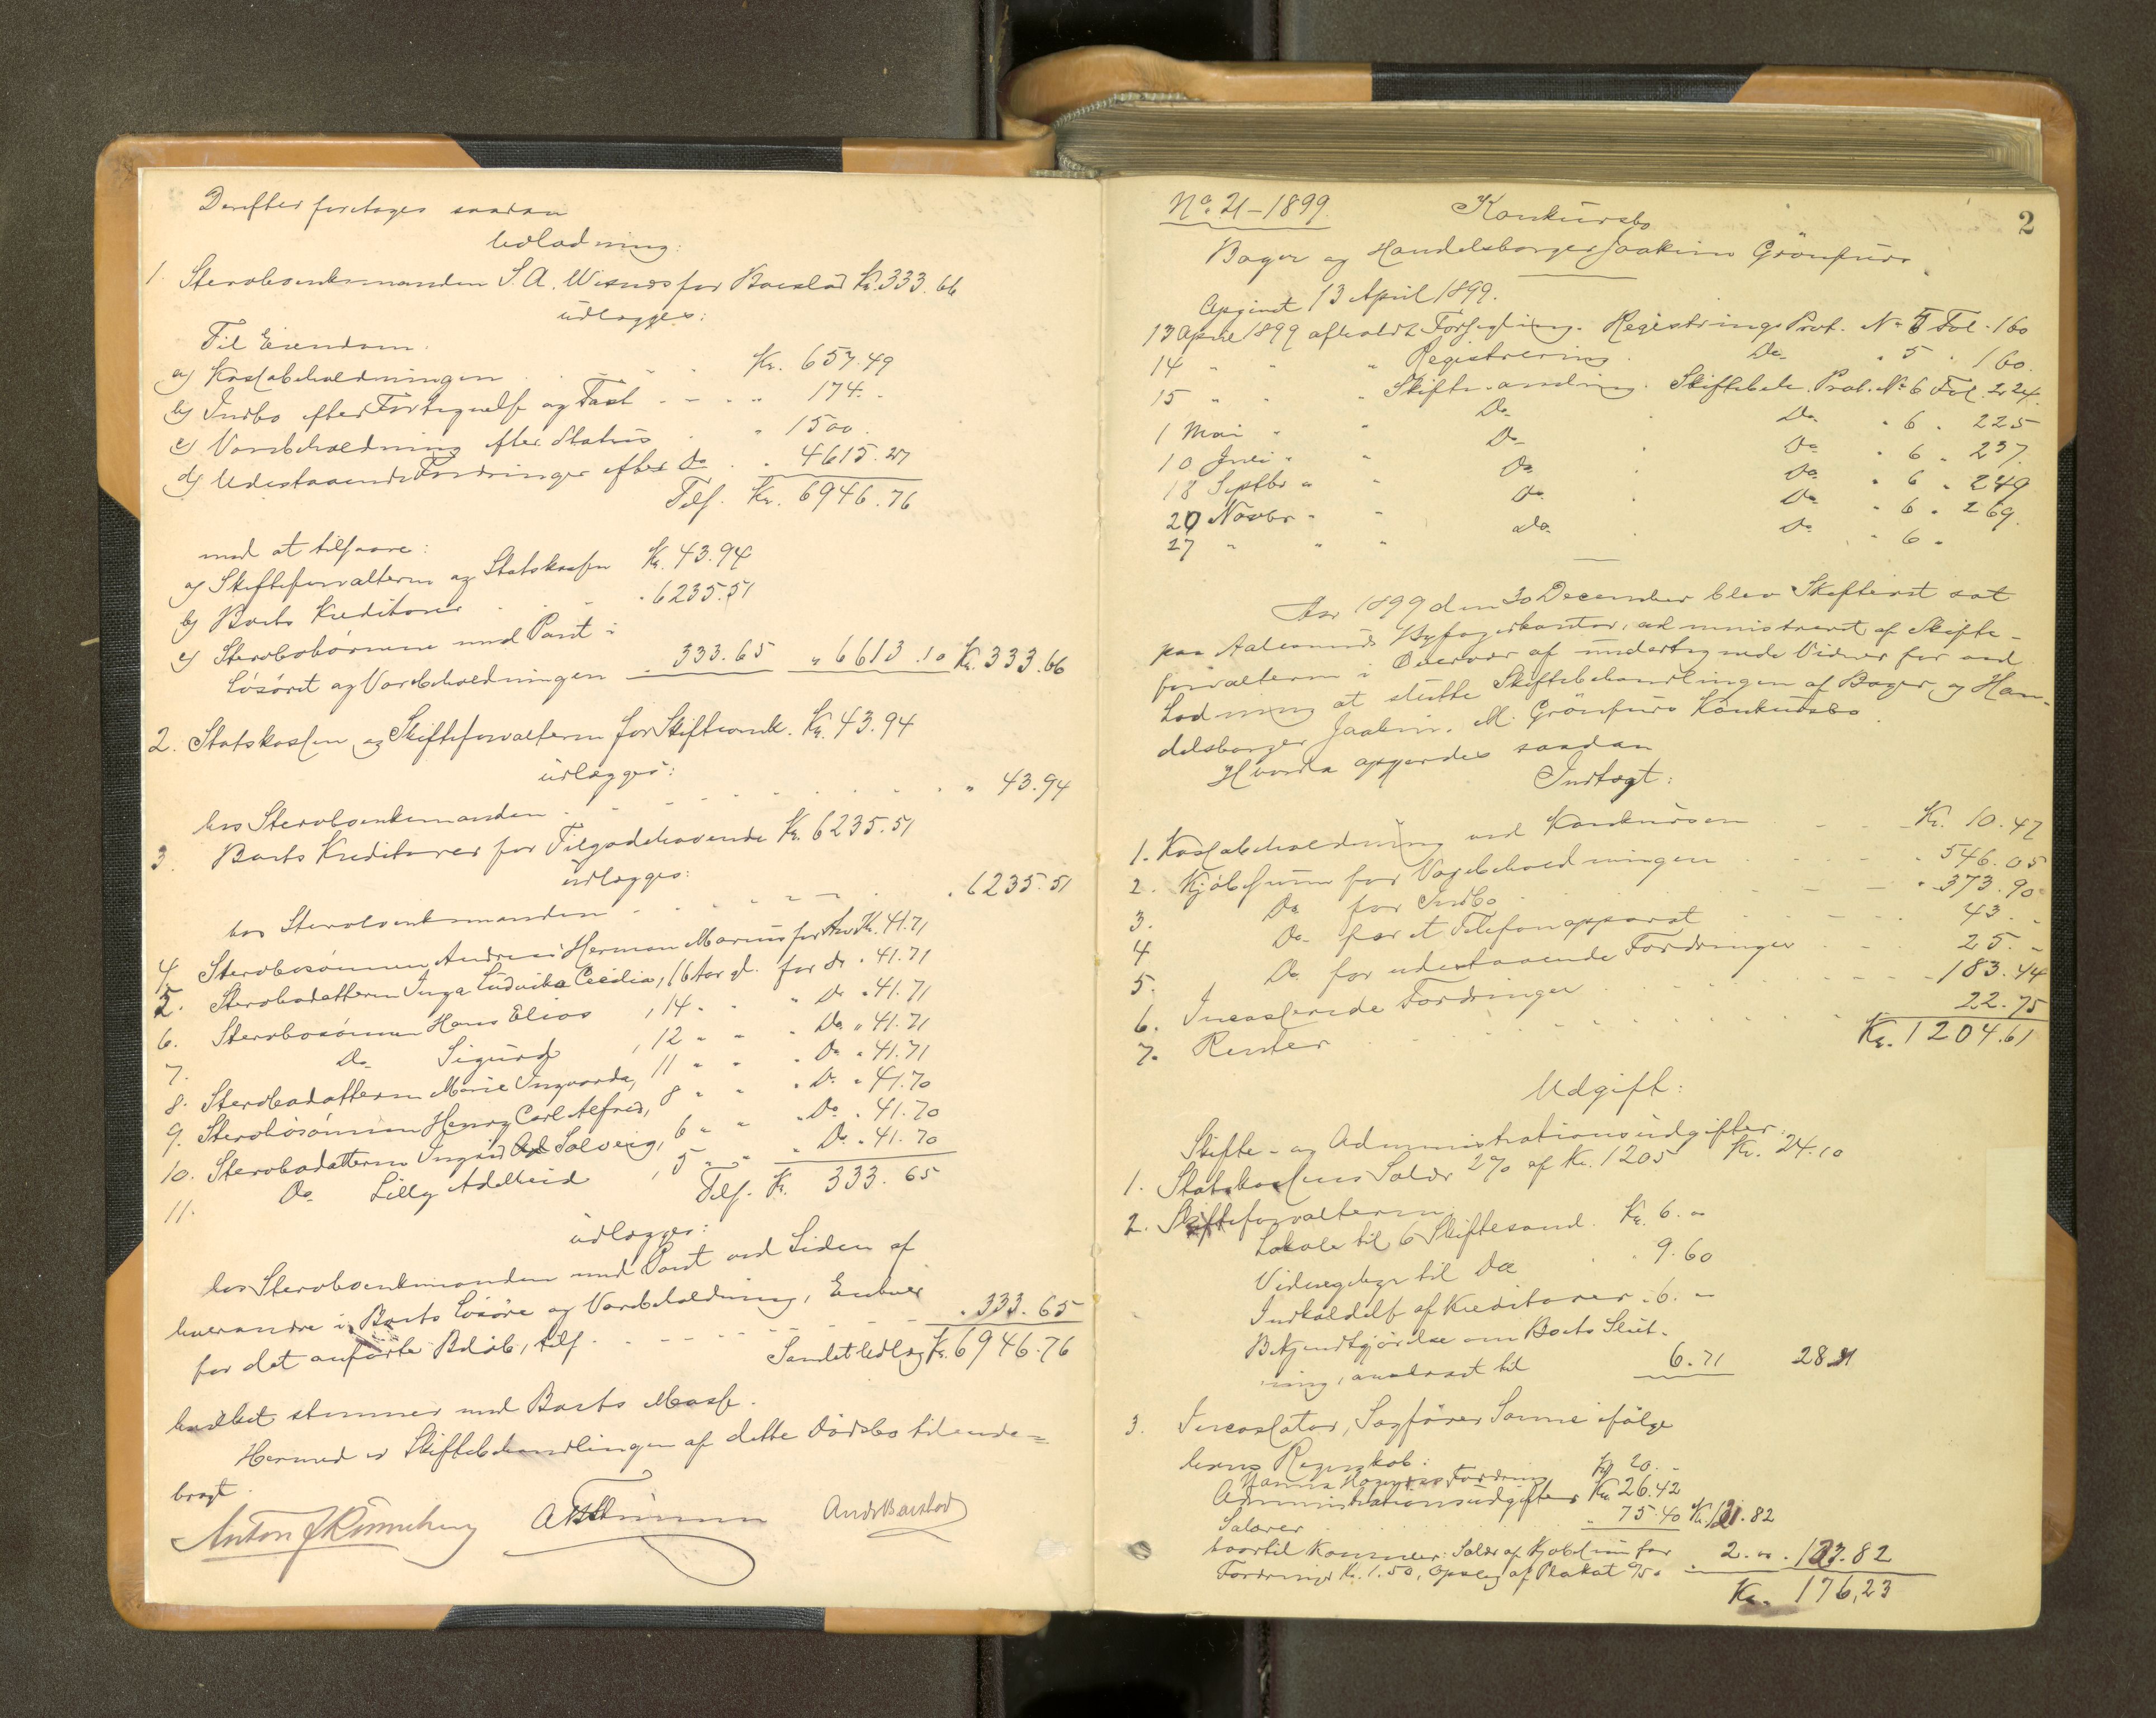 Derefter foretages saadan
Udlodning:
1. Stervboenkemanden S. A. Wisnes for Boeslod Kr. 333.66
udlægges:
Til Eiendom.
a) Kassabeholdningen . . . . Kr. 657.49
b) Indbo efter Fortegnelse og Taxt - - . . " 174. -
c) Varebeholdning efter Status . . " 1500.
d) Udestaaende Fordringer efter Do . . 4615.27
Tils. Kr. 6946.76
mod at tilsvare:
a) Skifteforvalteren og Statskassen Kr. 43.94
b) Boets Kreditorer . . . 6235.51
c) Stervbobörnene med Pant i
Lösöret og Varebeholdningen " 333.65 " 6613.10 Kr. 333.66
2. Statskassen og Skifteforvalteren for Skifteomk. Kr. 43.94
udlægges:
hos Stervboenkemanden . . . . . . . . " 43.94
3. Boets Kreditorer for Tilgodehavende Kr. 6235.51
udlægges:
hos Stervboenkemanden . . . . . . . 6235.51
4. Stervbosönnen Andreas Herman Marius for Arv Kr. 41.71
5. Stervbodatteren Inga Ludvika Cecilia, 16 Aar gl. for do " 41.71
6. Stervbosönnen Hans Elias , 14 " " " Do " 41.71
7. Do Sigurd , 12 " " " Do " 41.71
8. Stervbodatteren Marie Ingvarda, 11 " " " Do " 41.71
9. Stervbosönnen Henry Carl Alfred, 8 " " " Do " 41.70
10. Stervbodatteren Ingrid Solveig, 6 " " " Do " 41.70
11. Do Lilly Adelheid , 5 " " " Do " 41.70
Tils. Kr. 333.65
udlægges:
hos Stervboenkemanden med Pant ved Siden af
hverandre i Boets Lösöre og Varebeholdning, Enhver
for det anförte Belöb, tils. . . . . . . " 333.65
Samlet Udlæg Kr. 6946.76
hvilket stemmer med Boets Masse.
Hermed er Skiftebehandlingen af dette Dödsbo tilende=
bragt.
Anton J Rönneberg And. Barstad
No. 21 - 1899. Konkursbo 2
Bager og Handelsborger Joakim Grönfurs
Opgivet 13 April 1899.
13 April 1899 afholdt Forsegling. Registrerings Prot. No 5 Fol. 160
14 " " " Registrering. Do " 5 " 160.
15 " " " Skiftesamling. Skiftebeh. Prot. No 6 Fol. 224.
1 Mai " " Do . Do " 6 " 225
10 Juli " " Do . Do " 6 " 237.
18 Septbr " " Do . Do " 6 " 249
20 Novbr " " Do . Do " 6 " 269.
27 " " " Do . Do " 6 "
Aar 1899 den 30 December blev Skifteret sat
paa Aalesunds Byfogedkontor, administreret af Skifte-
forvalteren i Overvær af undertegnede Vidner for ved
Lodning at slutte Skiftebehandlingen af Bager og Han-
delsborger Joakim M. Grönfurs Konkursbo.
Hvorda opgjordes saadan
Indtægt:
1. Kassabeholdning ved Konkursen - - - Kr. 10.47
2. Kjöbesum for Varebeholdningen . . . . " 546.05
3. Do for Indbo . . - - - - " 373.90
4 Do for et Telefonapparat . . . - - 43. -
5. Do for udestaaende Fordringer . . - 25. -
6. Incasserede Fordringer . . . . . - - - 183.44
7. Renter . . . . . . . . . . 22.75
Kr. 1204.61
Udgift:
Skifte- og Administrationsudgifter:
1. Statskassens Salær 2% af Kr. 1205 Kr. 24.10
2. Skifteforvalteren
Lokale til 6 Skiftesaml. Kr. 6. "
Vidnegebyr til Do . " 9.60
Indkaldelse af Kreditorer " 6. -
Bekjendtgjörelse om Boets Slut-
ning, anslaaet til 6.71 28.31
3. Incassator, Sagförer Sanne ifölge
hans Regnskab:
Fordring Kr. 20. -
Administrationsudgifter Kr. 26.42
Salærer . . . . . . " 75.40 Kr. 121.82
hvortil kommer: Salær af Kjöbesum for
Fordringer Kr. 1.50, Opslag af Plakat 50 " 2. " " 123.82
Kr. 176,23